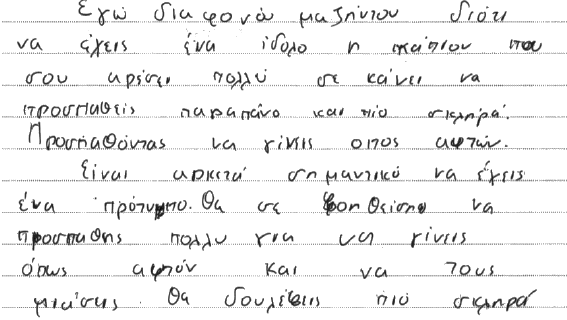 Εγώ διαφονώ μαζήντου διότι
να έχεις ένα ίδολο η κάπιον που
σου αρέσει πολλύ σε κάνει να
προσπαθείς παραπάνο και πιο σκληρά.
Προσπαθόντας να γίνεις οπος αφτών.
Είναι αρκετά σημαντικό να έχεις
ένα πρότυπο. Θα σε βοηθείση να
προσπαθης πολλυ για να γίνεις
όπως αφτόν και να τους
μιάσεις. Θα δουλέβεις πιό σκληρά